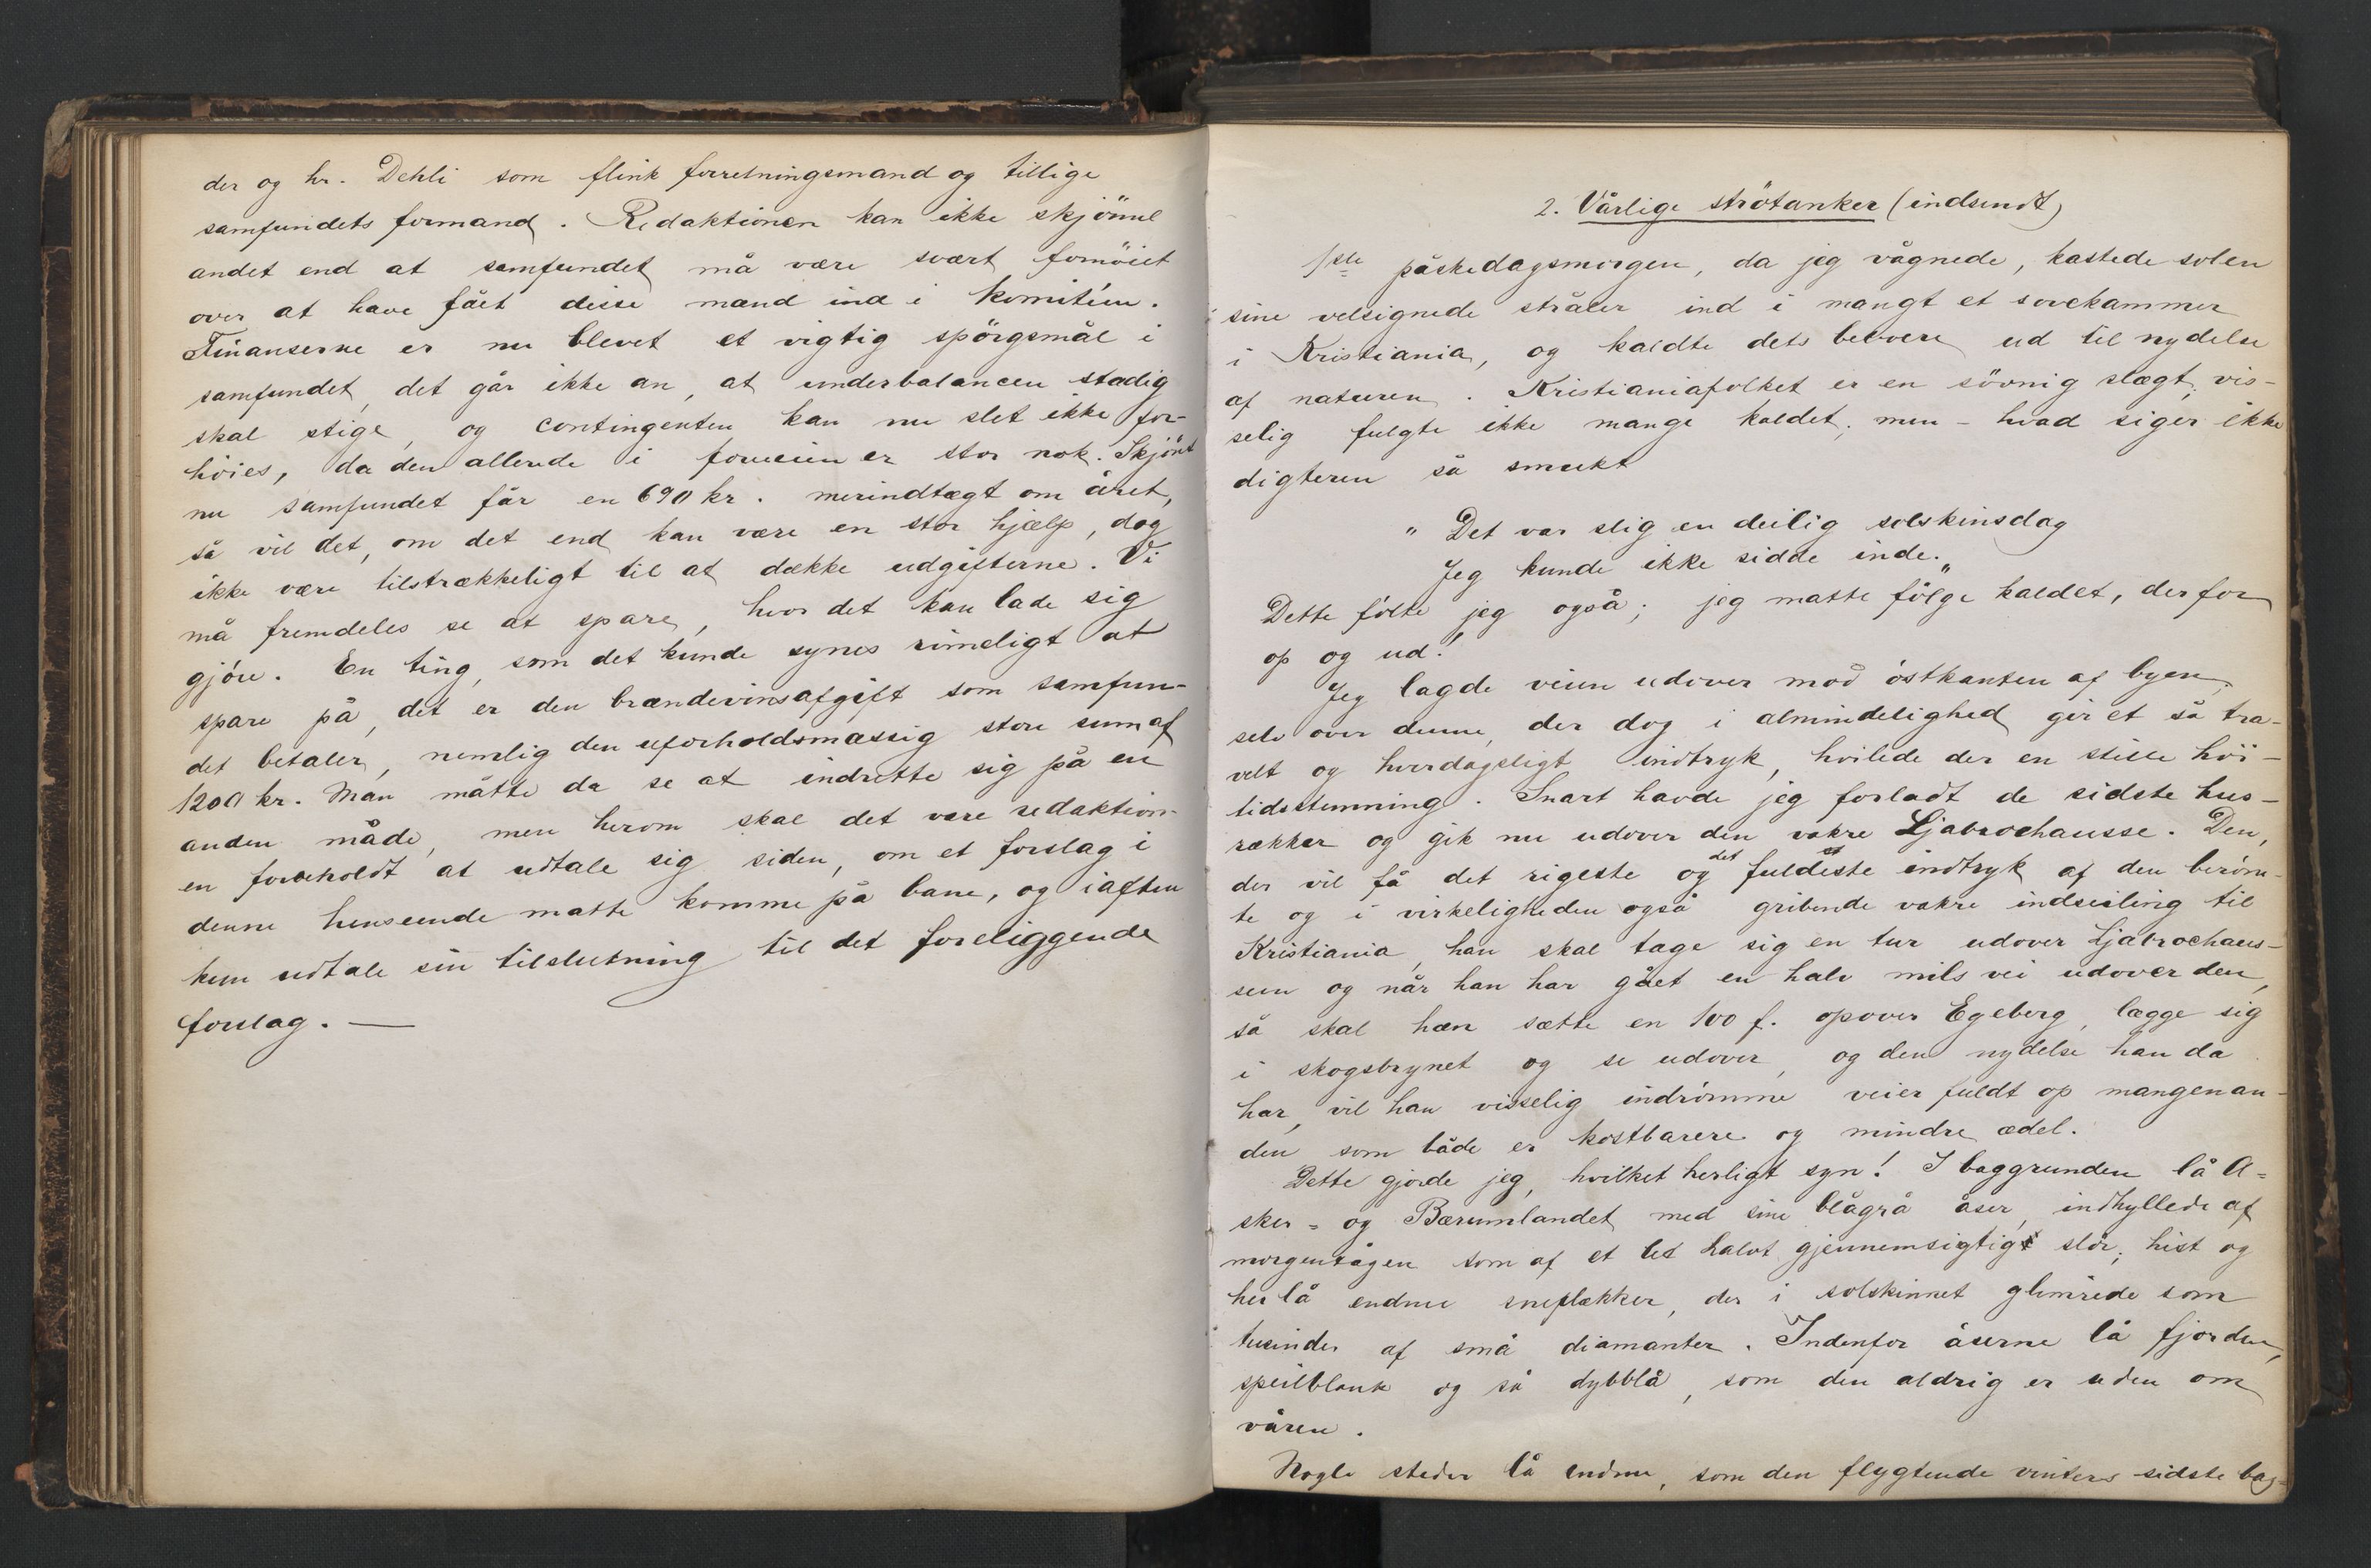 der og hr. Dehli som flink forretningsmand og tillige
samfundets formand. Redaktionen kan ikke skjönne
andet end at samfundet må være svært fornöiet
over at have fået disse mænd ind i komitéen.
Finanserne er nu blevet et vigtig spörgsmål i
samfundet, det går ikke an, at underbalancen stadig
skal stige, og contingenten kan nu slet ikke for-
höies, da den allerede i forveien er stor nok. Skjönt
nu samfundet får en 690 kr. merindtægt om året,
så vil det, om det end kan være en stor hjælp, dog
ikke være tilstrækkeligt til at dække udgifterne. Vi
må fremdeles se at spare, hvor det kan lade sig
gjöre. En ting, som det kunde synes rimeligt at
spare på, det er den brændevinsafgift som samfun-
det betaler, nemlig den uforholdsmæssig store sum af
1200 kr. Man måtte da se at indrette sig på en
anden måde, men herom skal det være redaktion-
en forbeholdt at udtale sig siden, om et forslag i
denne henseende måtte komme på bane, og iaften
kun udtale sin tilslutning til det foreliggende
forslag. —
2. Vårlige strötanker (indsendt)
1ste påskedagsmorgen, da jeg vågnede, kastede solen
sine velsignede stråler ind i mangt et sovekammer
i Kristiania, og kaldte dets beboere ud til nydelse
af naturen. Kristianiafolket er en sövnig slægt, vis-
selig fulgte ikke mange kaldet; men – hvad siger ikke
digteren så smukt
" Det var slig en deilig solskinsdag
Jeg kunde ikke sidde inde."
Dette fölte jeg også; jeg måtte fölge kaldet, derfor
op og ud!
Jeg lagde veien udover mod östkanten af byen,
selv over denne, der dog i almindelighed gir et så tra-
velt og hverdagsligt indtryk, hvilede der en stille höi-
tidsstemning. Snart havde jeg forladt de sidste hus-
rækker og gik nu udover den vakre Ljabrochausse. Den,
der vil få det rigeste og det fuldeste indtryk af den beröm-
te og i virkeligheden også gribende vakre indseiling til
Kristiania, han skal tage sig en tur udover Ljabrochaus-
seen og når han har gået en halv mils vei udover den,
så skal han sætte en 100 f. opover Egeberg, lægge sig
i skogsbrynet og se udover, og den nydelse han da
har, vil han visselig indrömme veier fuldt op mangen an-
den som både er kostbarere og mindre ædel.
Dette gjorde jeg, hvilket herligt syn! I baggrunden lå A-
sker- og Bærumlandet med sine blågrå åser, indhyllede af
morgentågen som af et let halvt gjennemsigtigt slör; hist og
her lå endnu sneflækker, der i solskinnet glimrede som
tusinder af små diamanter. Indenfor åserne lå fjorden,
speilblank og så dybblå, som den aldrig er uden om
våren.
Nogle steder lå endnu, som den flygtende vinters sidste bag-